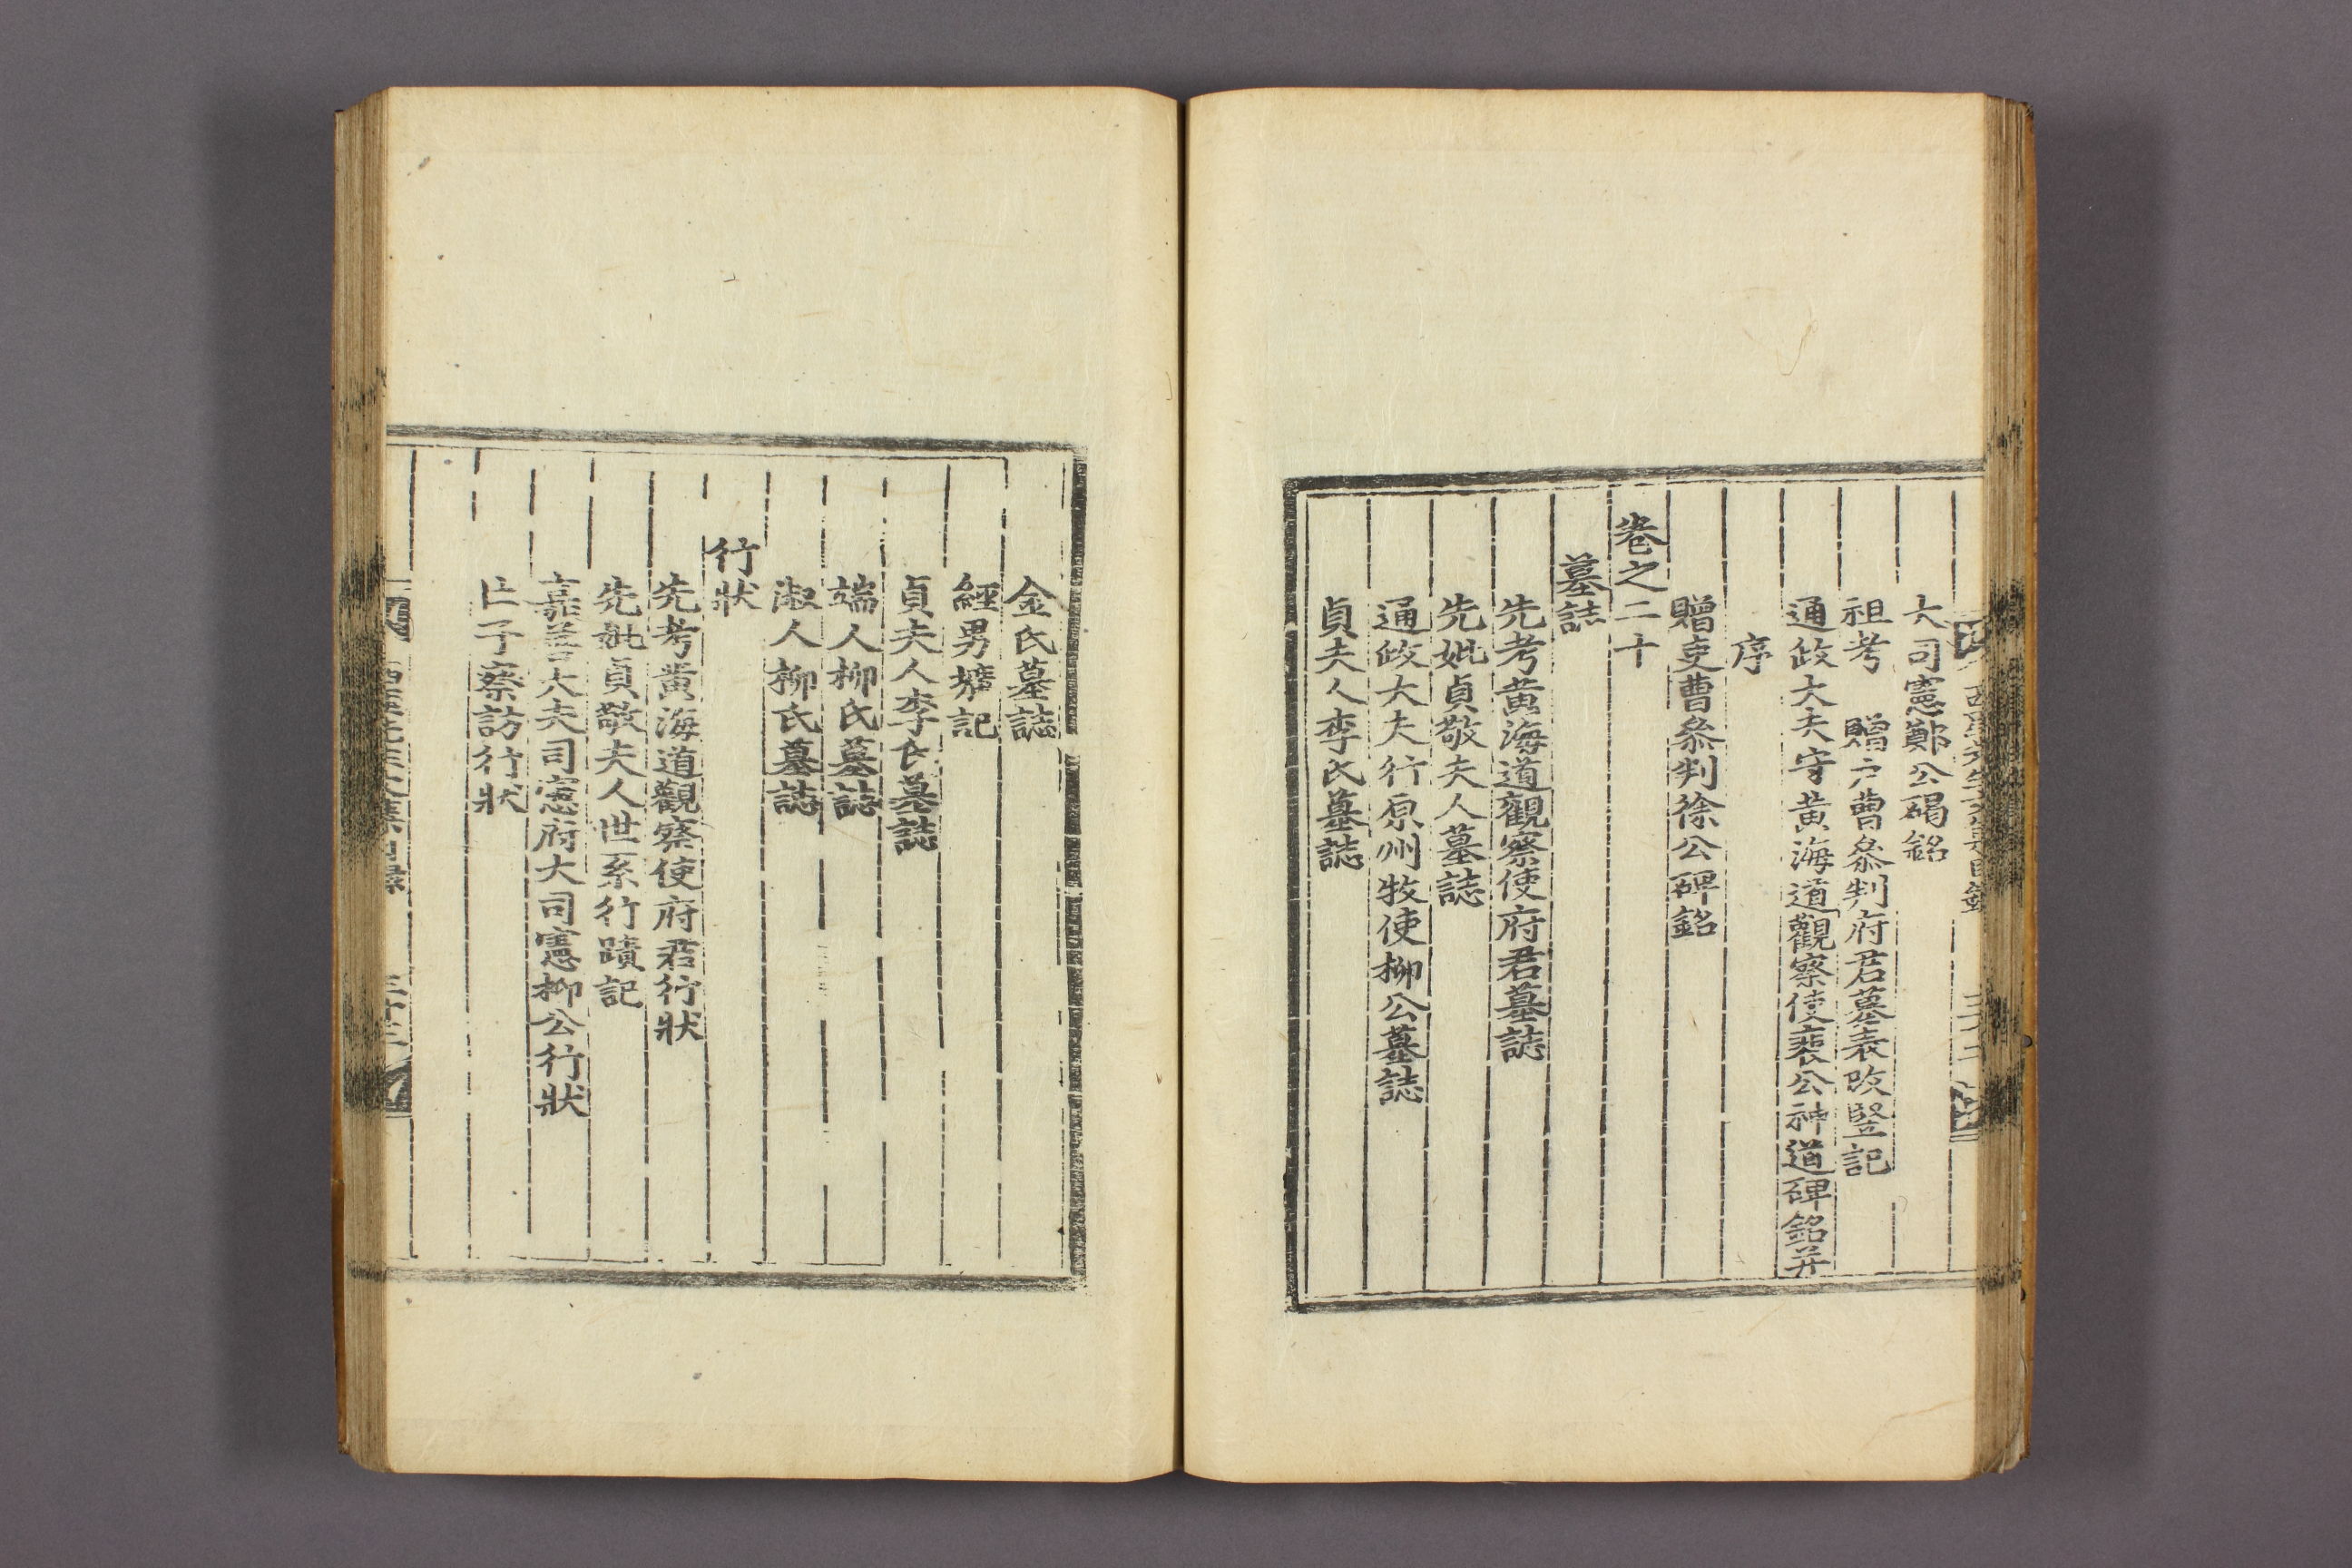 大司憲鄭公碣銘
祖考　贈戶曹叅判府君墓表改竪記
通政大夫守黃海道觀察使裵公神道碑銘并
序
贈吏曹叅判徐公碑銘
卷之二十
墓誌
先考黃海道觀察使府君墓誌
先妣貞敬夫人墓誌
通政大夫行原州牧使柳公墓誌
貞夫人李氏墓誌
金氏墓誌
經男壙記
貞夫人李氏墓誌
端人柳氏墓誌
淑人柳氏墓誌
行狀
先考黃海道觀察使府君行狀
先妣貞敬夫人世系行蹟記
嘉善大夫司憲府大司憲柳公行狀
亡子䅁訪行狀